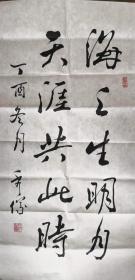 海上生明月
天涯共此時
丁酉冬月